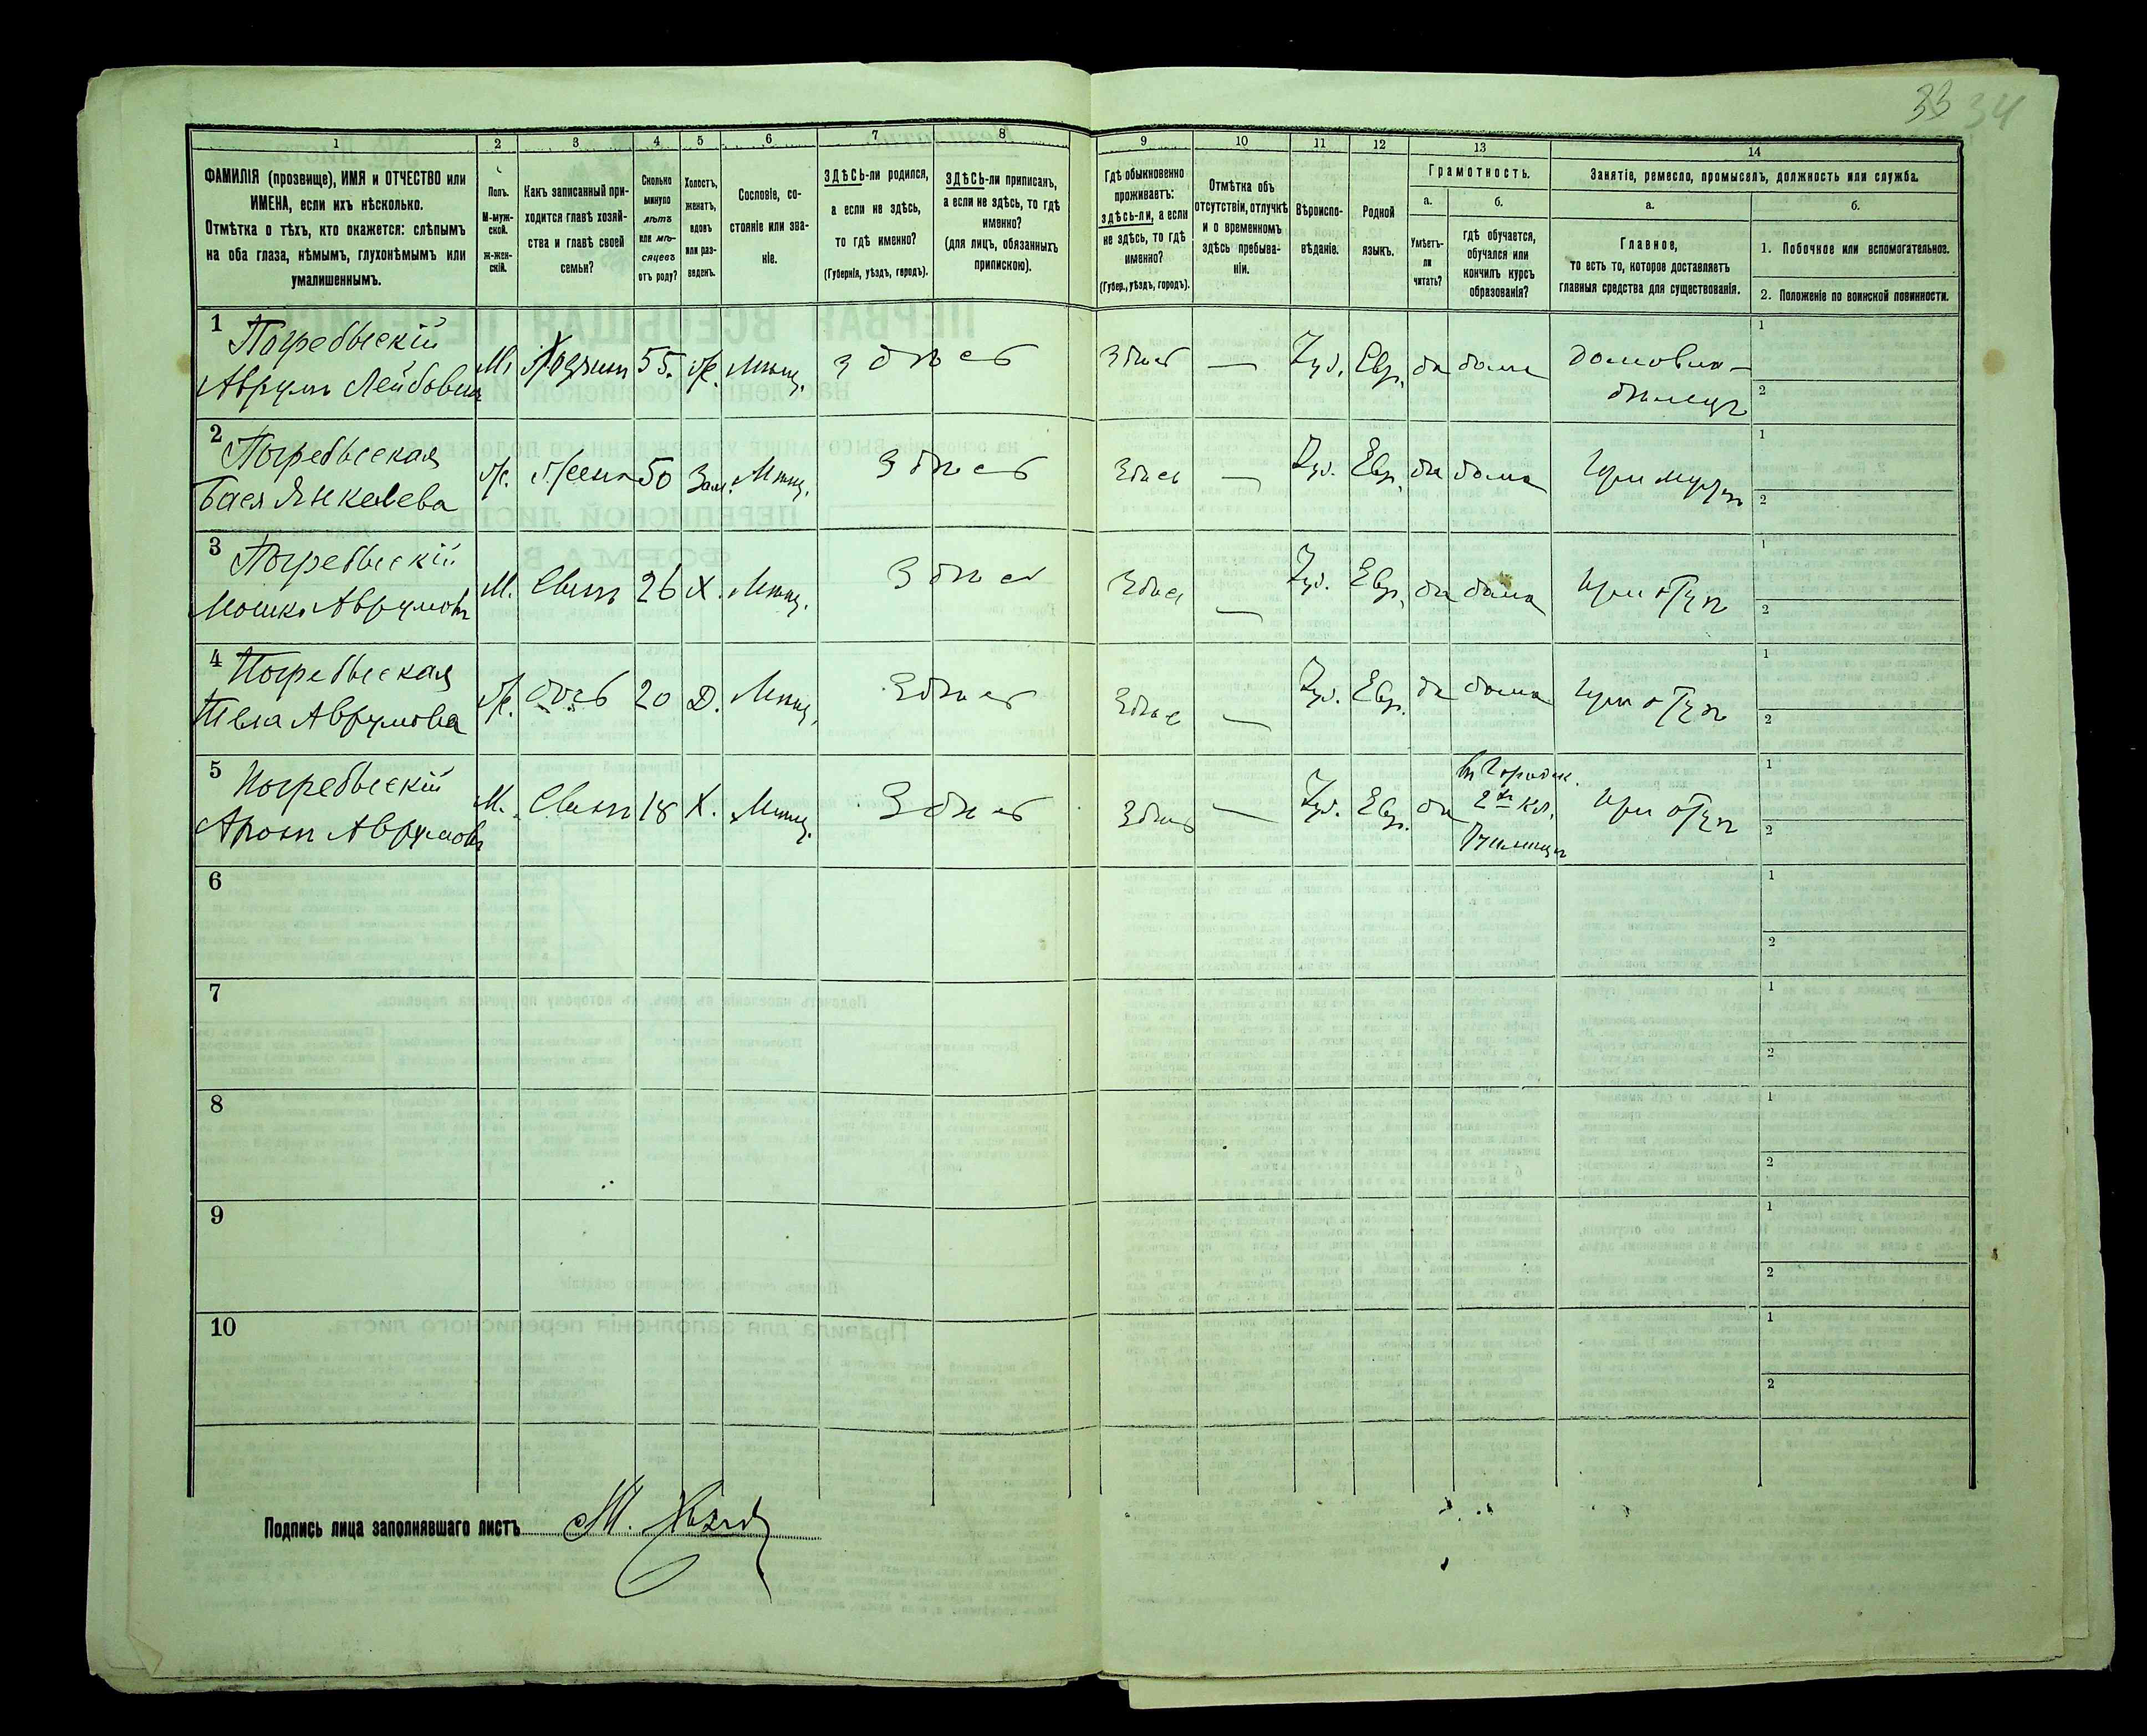 33 34
1 2 3 4 5 6 7 8 9 10 11 12 13 14
ФАМИЛІЯ (прозвище), ИМЯ и ОТЧЕСТВО или
ИМЕНА, если ихъ нѣсколько.
Отмѣтка о тѣхъ, кто окажется: слѣпымъ
на оба глаза, нѣмымъ, глухонѣмымъ или
умалишеннымъ.
Полъ.
М-муж-
ской.
Ж-жен-
скій.
Какъ записанный при-
ходится главѣ хозяй-
ства и главѣ своей
семьи?
Сколько
минуло
лѣтъ
или мѣ-
сяцевъ
отъ роду?
Холостъ,
женатъ,
вдовъ
или раз-
веденъ.
Сословіе, со-
стояніе или зва-
ніе.
ЗДѢСЬ-ли родился,
а если не здѣсь,
то гдѣ именно?
(Губернія, уѣздъ, городъ).
ЗДѢСЬ-ли приписанъ,
а если не здѣсь, то гдѣ
именно?
(для лицъ, обязанныхъ
припискою).
Гдѣ обыкновенно
проживаетъ:
здѣсь-ли, а если
не здѣсь, то гдѣ
именно?
(Губер., уѣздъ, городъ).
Отмѣтка объ
отсутствіи, отлучкѣ
и о временномъ
здѣсь пребыва-
ніи.
Вѣроиспо-
вѣданіе.
Родной
языкъ.
Грамотность.
а.
Умѣетъ-
ли
читать?
б.
гдѣ обучается,
обучался или
кончилъ курсъ
образованія?
Занятіе, ремесло, промыселъ, должность или служба.
а.
Главное,
то есть то, которое доставляетъ
главныя средства для существованія.
б.
1. Побочное или вспомогательное.
2. Положеніе по воинской повинности.
1 Погребыскій
Аврумъ Лейбовичъ
М. Хозяинъ 55. Ж. Мѣщ. Здѣсь
Здѣсь — Іуд. Евр. да дома домовла-
дѣлецъ
1
2
2 Погребыская
Бася Янкелева
Ж. Жена 50 Зам. Мѣщ. Здѣсь
Здѣсь — Іуд. Евр. да дома при мужѣ
1
2
3 Погребыскій
Мошко Аврумовъ
М. Сынъ 26 Х. Мѣщ. Здѣсь
Здѣсь — Іуд. Евр. да дома при отцѣ
1
2
4 Погребыская
Аврумова
Ж. дочь 20 Д. Мѣщ. Здѣсь
Здѣсь — Іуд. Евр. да дома при отцѣ
1
2
5 Погребыскій
Аронъ Аврумовъ
М. Сынъ 18 Х. Мѣщ. Здѣсь
Здѣсь — Іуд. Евр. да въ Городск.
2хъ кл.
Училищѣ
при отцѣ
1
2
6
1
2
7
1
2
8
1
2
9
1
2
10
1
2
Подпись лица заполнявшаго листъ М.